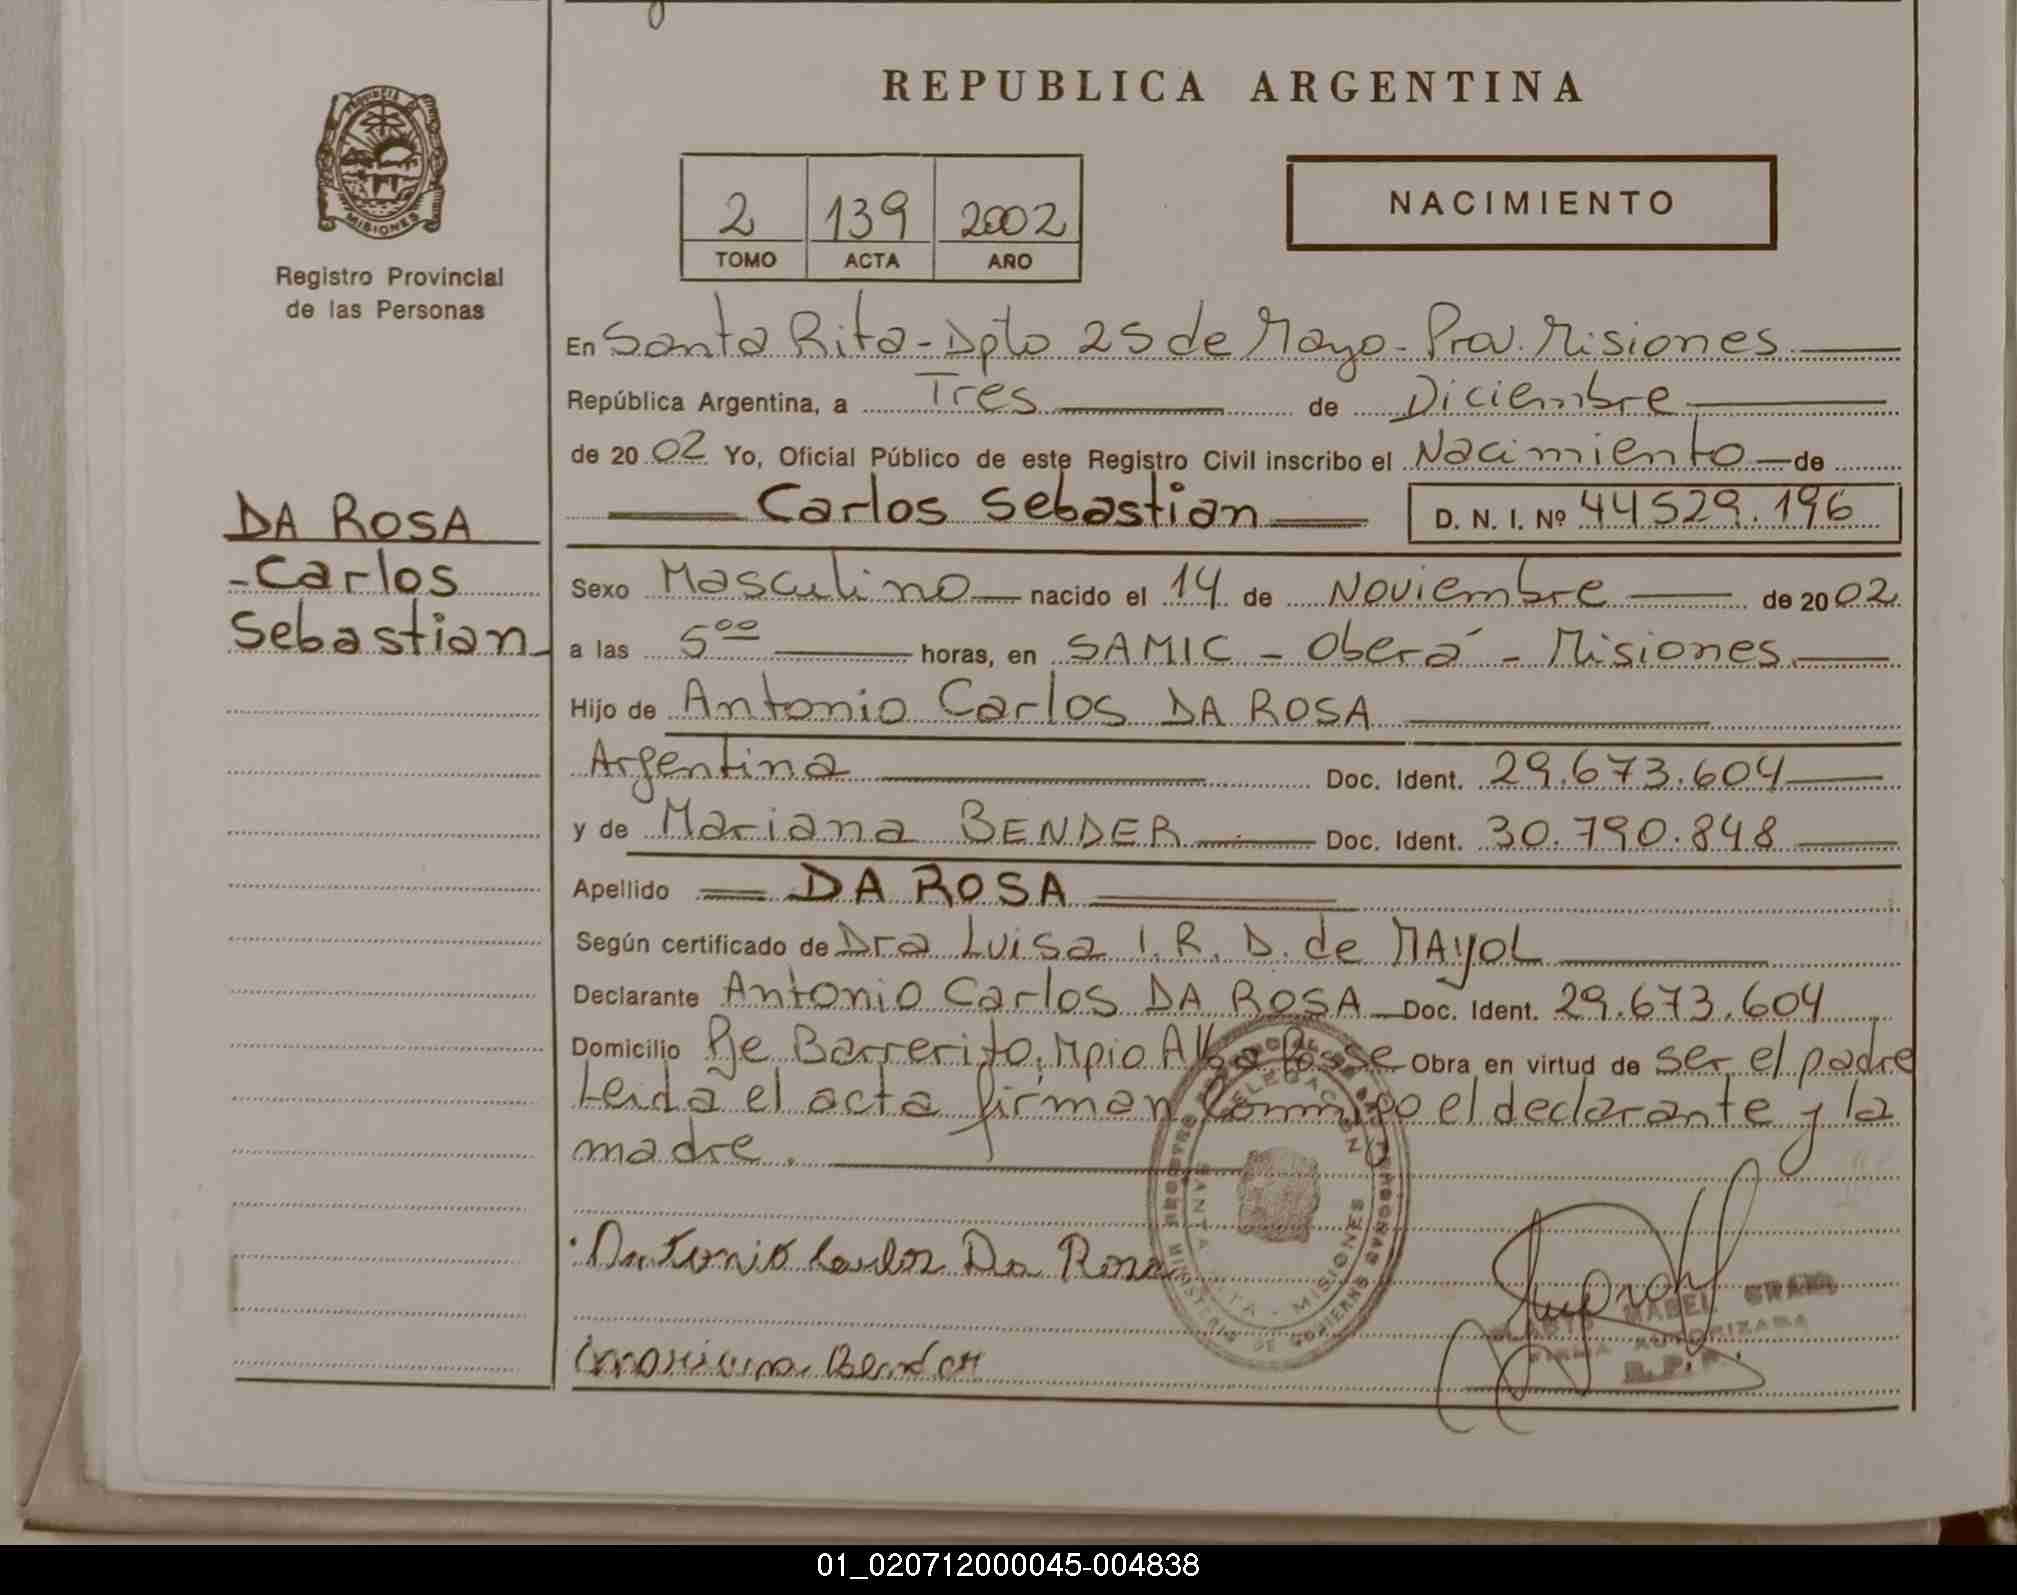 REPUBLICA ARGENTINA
PROVINCIA
MISIONES
Registro Provincial
de las Personas
2 139 2002
TOMO ACTA AÑO
NACIMIENTO
En Santa Rita - Dpto 25 de Mayo - Prov. Misiones
República Argentina, a Tres de Diciembre
de 2002 Yo, Oficial Público de este Registro Civil inscribo el Nacimiento de
Carlos Sebastian D. N. I. Nº 44529.196
DA ROSA
- Carlos
Sebastian
Sexo Masculino nacido el 14 de Noviembre de 2002
a las 5⁰⁰ horas, en SAMIC - Oberá - Misiones
Hijo de Antonio Carlos DA ROSA
Argentina Doc. Ident. 29.673.604
y de Mariana BENDER Doc. Ident. 30.790.848
Apellido DA ROSA
Según certificado de Dra Luisa I. R. D. de MAYOL
Declarante Antonio Carlos DA ROSA Doc. Ident. 29.673.604
Domicilio Pje Barrerito, Mpio Alba Posse Obra en virtud de ser el padre
Leida el acta firman conmigo el declarante y la
madre.
DELEGACION
SANTA RITA - MISIONES
MINISTERIO DE GOBIERNO
Antonio Carlos Da Rosa
Mariana Bender
MABEL
FIRMA AUTORIZADA
R.P.P.
01_020712000045-004838